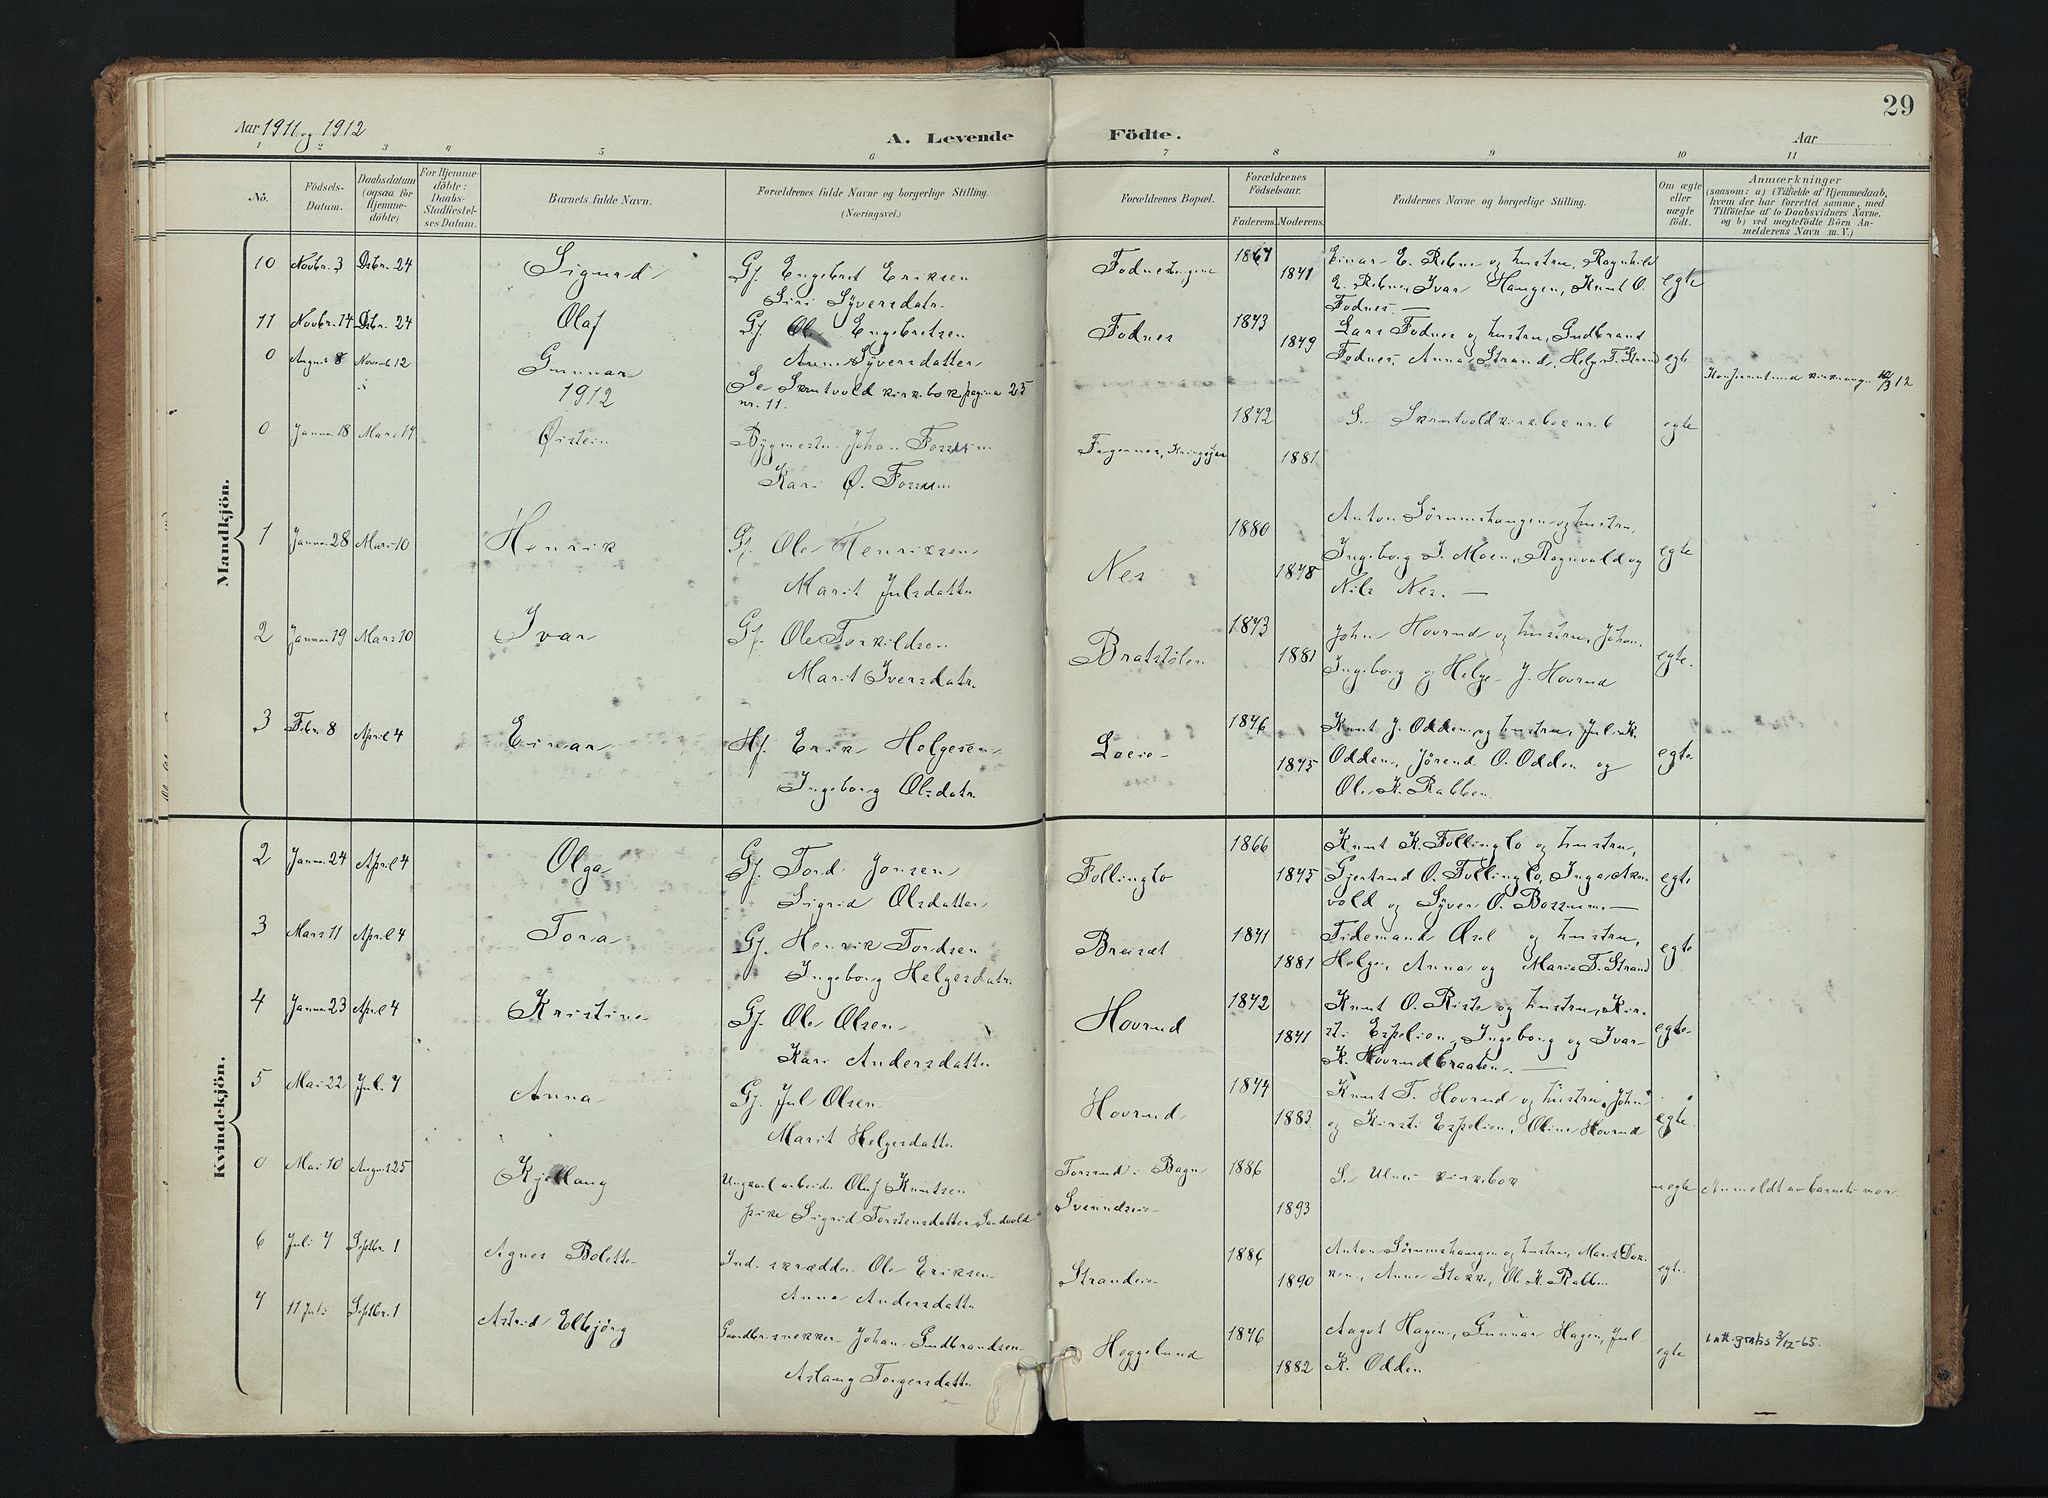 Aar 1911 og 1912
A. Levende Födte.
Aar
29
1 2 3 4 5 6 7 8 9 10 11
No.
Födsels-Datum.
Daabsdatum (ogsaa for Hjemme-döbte)
For Hjemme-döbte: Daabs-Stadfæstel-ses Datum.
Barnets fulde Navn.
Forældrenes fulde Navne og borgerlige Stilling. (Næringsvei.)
Forældrenes Bopæl.
Forældrenes Födselsaar.
Faderens. Moderens.
Faddernes Navne og borgerlige Stilling.
Om ægte eller uægte födt.
Anmærkninger
(saasom: a) i Tilfælde af Hjemmedaab, hvem der har forrettet samme, med Tilföielse af to Daabsvidners Navne, og b) ved uægtefödte Börn An-melderens Navn m. V.)
Mandkjön.
10 Novbr. 3 Dsbr. 24 Sigurd Gj. Engebret Eriksen
Siri Syversdatr.
1841 Einar E. Ribne og hustru, Ragnhild
E. Ribne, Ivar Haugen, Knut O.
Fodnes. egte
11 Novbr. 14 Dsbr. 24 Olaf Gj. Ole Engebretsen
Anne Syversdatter
Fodnes 1873 1879 Lars Fodnes og hustru, Gudbrand
Fodnes, Anna Strand, Helge T. Strand egte
0 August 8 Novemb 12 Gunnar
Se Skrutvold kirkebok pagina 25
nr. 11.
1912
0 Januar 18 Mars 17 Øistein Bygmester Johan Fossum
Kari O. Fossum
Fagernes, 1872 1881 Se Skrutvold kirkebok nr. 6 egte
1 Januar 28 Mars 10 Henrik Gj. Ole Henriksen
Marit Julsdatter
Nes 1880 1878 Anton Sørumshaugen og hustru,
Ingeborg J. Moen, Ragnvald og
Nils Nes. egte
2 Januar 19 Mars 10 Ivar Gj. Ole Torkildsen
Marit Iversdatr.
Bratstølen 1873 1881 John Hovrud og hustru, Johan,
Ingeborg og Helge J. Hovrud egte.
3 Febr. 8 April 4 Einar Hf. Erik Helgesen
Ingeborg Olsdatr.
1876 1875 Knut J. Odden og hustru, Jul K.
Odden, Jørend O. Odden og
Ole K. Rabben. egte
Kvindekjön.
2 Januar 24 April 4 Olga Gj. Tord Jonsen
Sigrid Olsdatter
Follinglo 1866 1875 Knut K. Follinglo og hustru,
Gjertrud O. Follinglo, Inga
vold og Syver O. Bossum. egte
3 Mars 11 April 4 Tora Gj. Henrik Tordsen
Ingeborg Helgesdatr.
Breisæt 1871 1881 Tidemand og hustru,
Helge, Anna og Marie T. Strand egte
4 Januar 23 April 4 Kristine Gj. Ole Olsen
Kari Andersdatter
Hovrud 1872 1871 Knut O. Riste og hustru, Kir-
sti Espelien, Ingeborg og Ivar
K. Hovrudbraaten. egte
5 Mai 22 Juli 7 Anna Gj. Jul Olsen
Marit Helgesdatter
Hovrud 1874 1883 Knut T. Hovrud og hustru, John
og Kirsti Espelien, Oline Hovrud egte
0 Mai 10 August 25 Kjellaug Ungkarl arbeider Olaf Knutsen
pike Sigrid Torstensdatter Sandvold
i Bagn
1886 1893 Se Ulnes kirkebok uegte Anmeldt av barnets mor.
6 Juli 7 Septbr. 1 Agnes Bolette Ind. skrædder Ole Eriksen
Anna Andersdatter
Strandeie 1886 1890 Anton Sørumshaugen og hustru, Marit Dok-
ken, Anne Stokke, Ole K. Rabben egte.
7 11 Juli Septbr. 1 Astrid Elbjørg Gaardbr. snekker Johan Gudbrandsen
Aslaug Torgersdatter
Heggelund 1876 1882 Aagot Hagen, Gunnar Hagen, Jul
K. Odden egte 3/12-65.